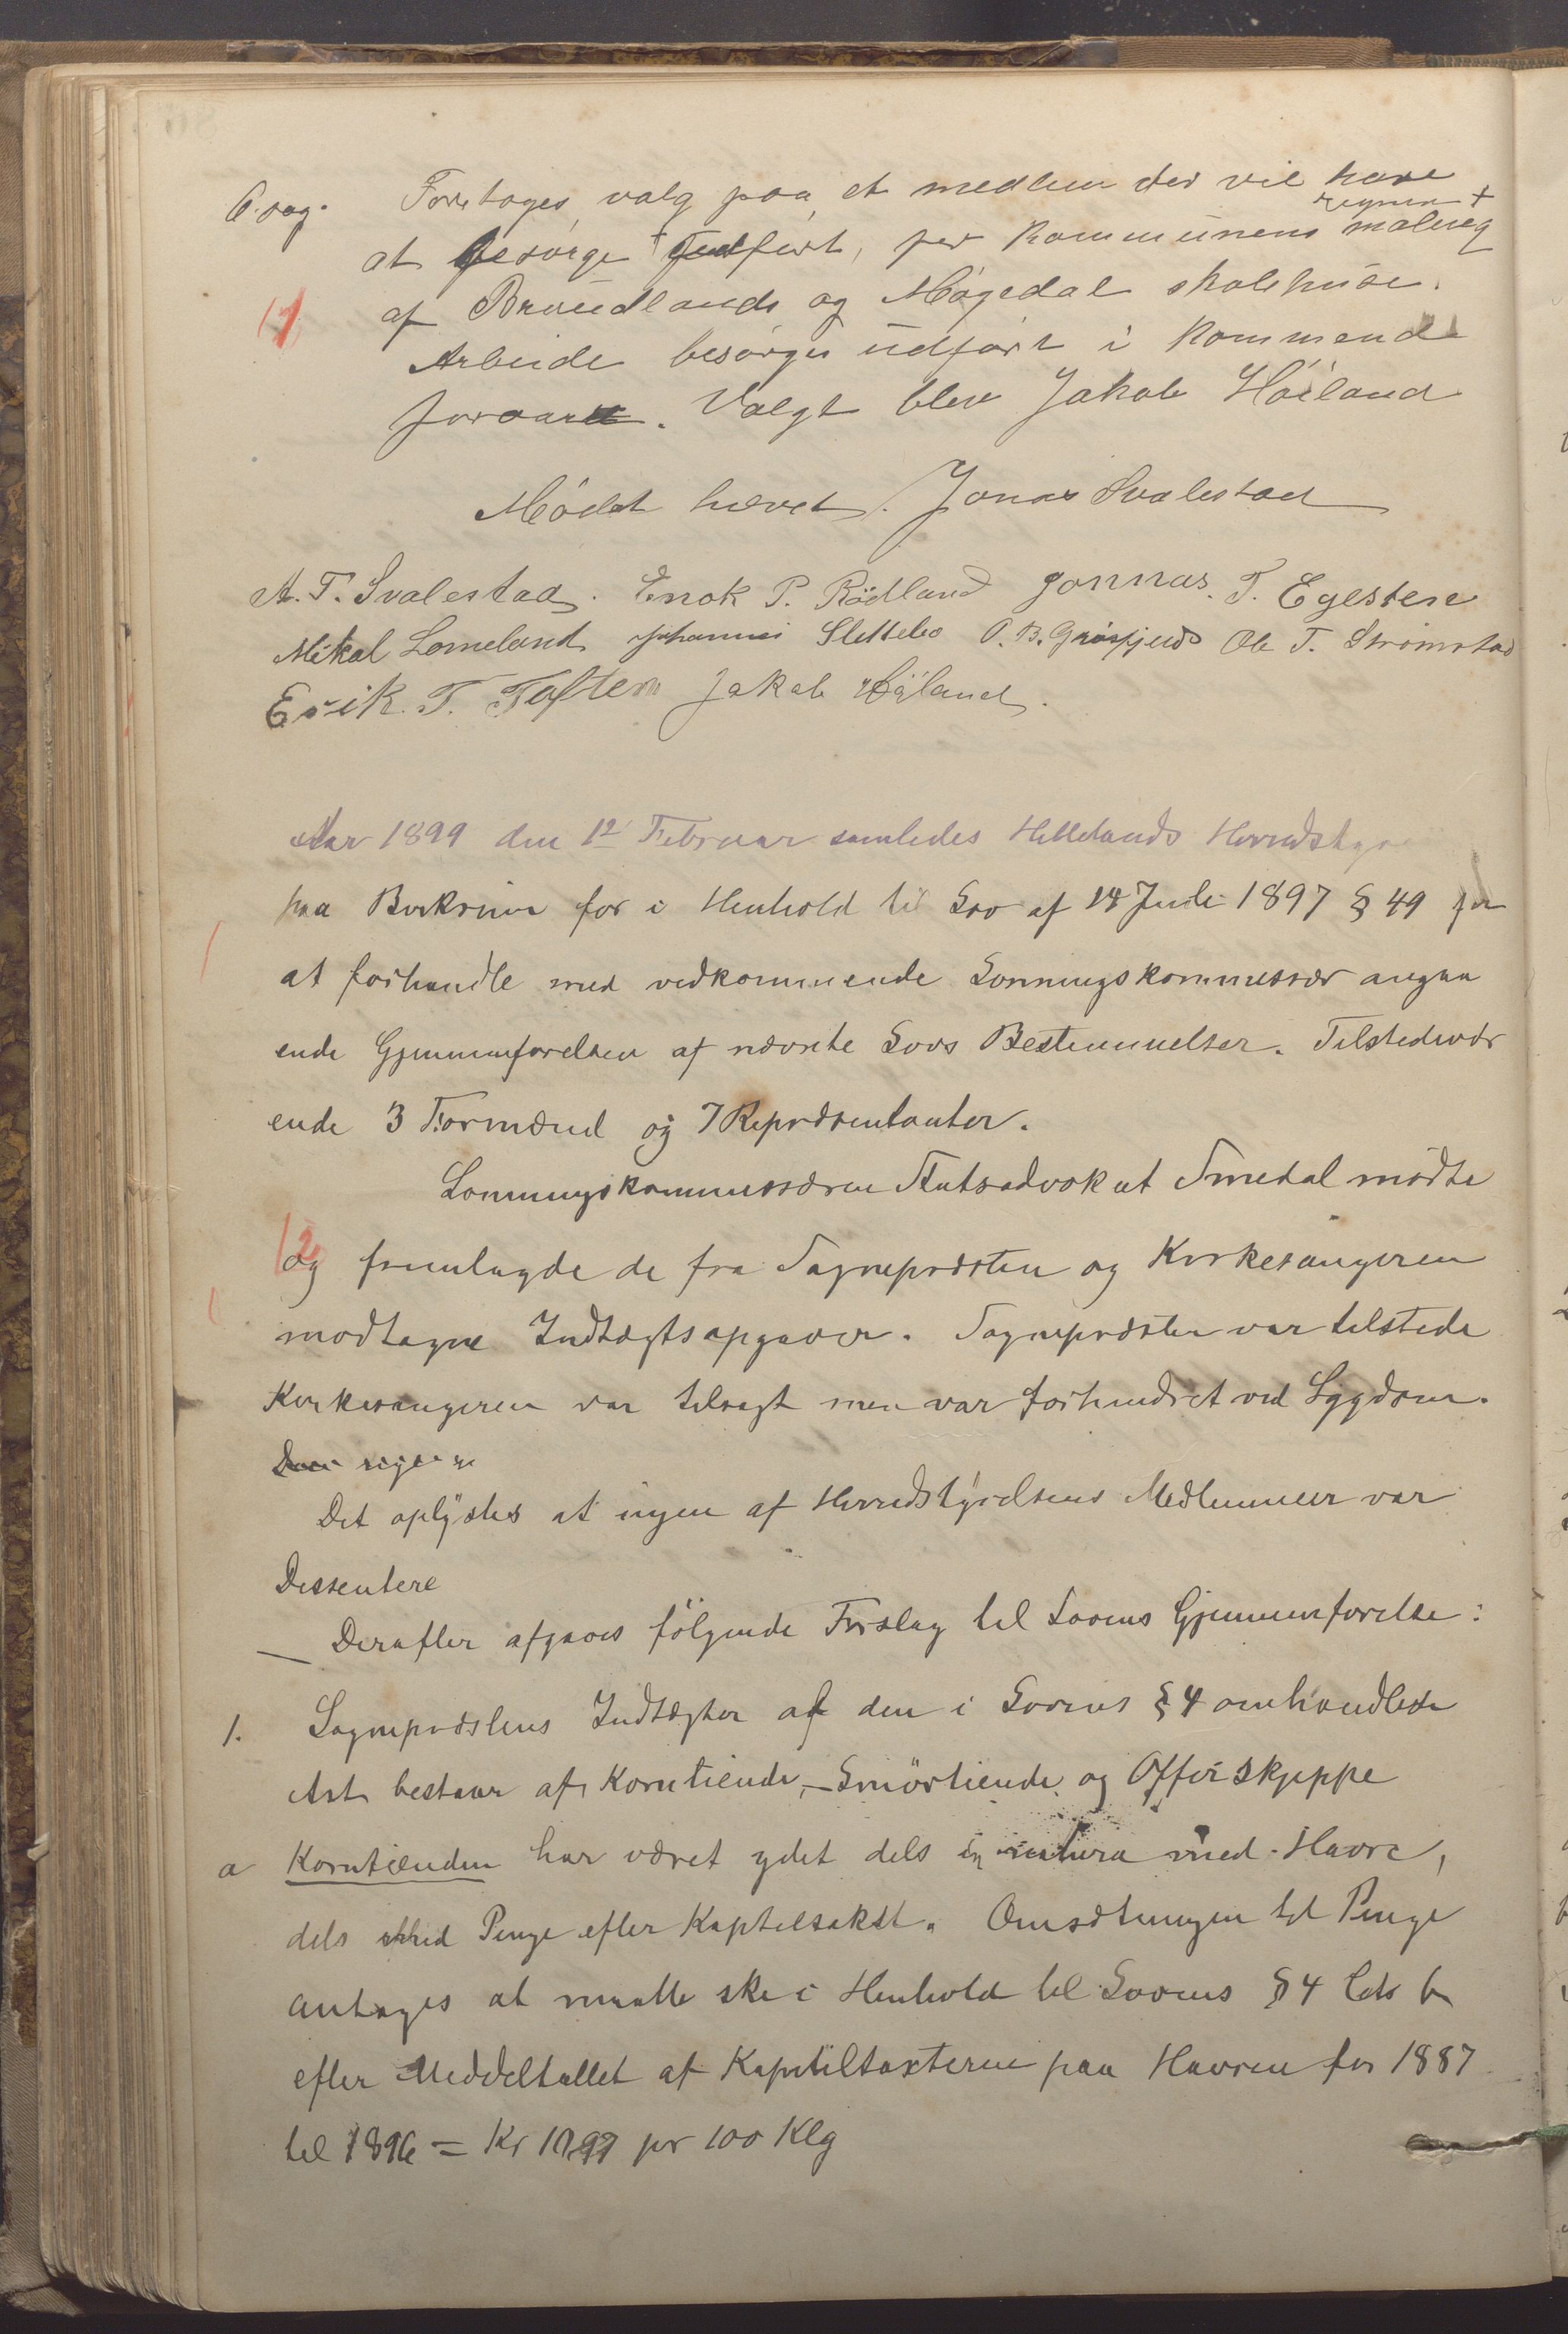 6. sag. Foretoges valg paa et medlem der vil have
regnin +
at besørge + udført, per kommunens maling
11 af Brøudlands og Møgedal skolehuse.
Arbeide besørges üdført i kommende
foraar. Valgt blev Jakob Høiland
Mødet hævet. Jonas Svalestad
A. T. Svalestad. Enok P. Rødland Jonnas. T. Egesten
Mikal Lomeland Johannes Slettebø O. B. Grøsfjeld Ole T. Strømstad
Erik. T. Toften Jakob Høiland.
Aar 1899 den 1ste Februar samledes Hellelands Herredstyre
paa Birkrim for i Henhold til Lov af 14 Juli 1897 § 49 for
at forhandle med vedkommende Lønningskommissær angaa
ende Gjennemførelsen af nævnte Lovs Bestemmelser. Tilstedevær
ende 3 Formænd og 7 Repræsentanter.
Lønningskommissæren Statsadvokat Smedal mødte
12 og fremlagde de fra Sognepræsten og Kirkesangeren
modtagne Indtægtsopgaver. Sognepræsten var tilstede
Kirkesangeren var tilsagt men var forhindret ved Sygdom.
Det oplystes at ingen af Herredstyrelsens Medlemmer var
Dissentere
Derefter afgaves følgende Forslag til Lovens Gjennemførelse:
1. Sognepræstens Indtægter af den i Lovens § 4 omhandlede
Art bestaar af Korntiende, Smørtiende og Offerskjeppe
a Korntienden har været ydet dels in natura med Havre,
dels med Penge efter Kapitelstakst. Omsætningen til Penge
antages at maatte ske i Henhold til Lovens § 4 Litr b
efter Middeltallet af Kapiteltaxterne paa Havren for 1887
til 1896 = Kr 10,97 pr 100 Klg